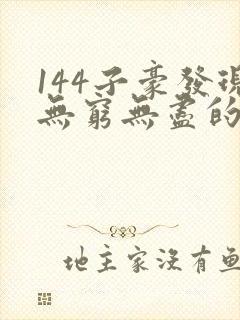 144子豪發現
無窮無盡的
地主家沒有魚